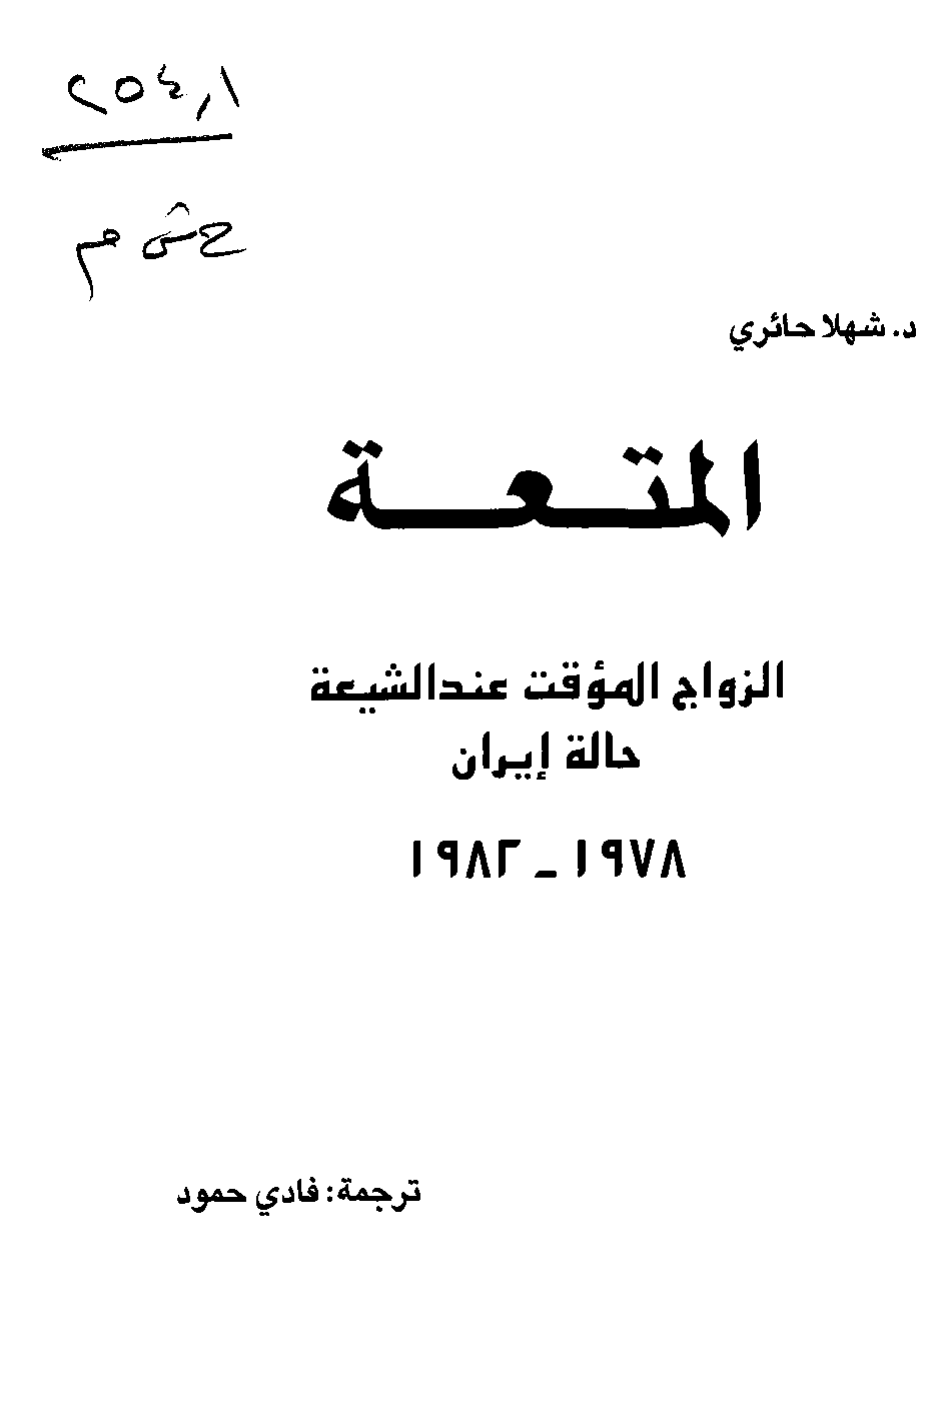 ٢٥٤٫١
ح ش م
د. شهلا حائري
المتعة
الزواج المؤقت عند الشيعة
حالة إيران
١٩٧٨ - ١٩٨٢
ترجمة: فادي حمود